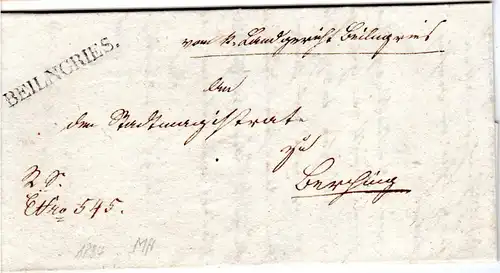 BEILNGRIES.
vom k. Landgericht Beilngries
An
den Stadtmagistrat
zu
Berching
R. S.
ENro 545.